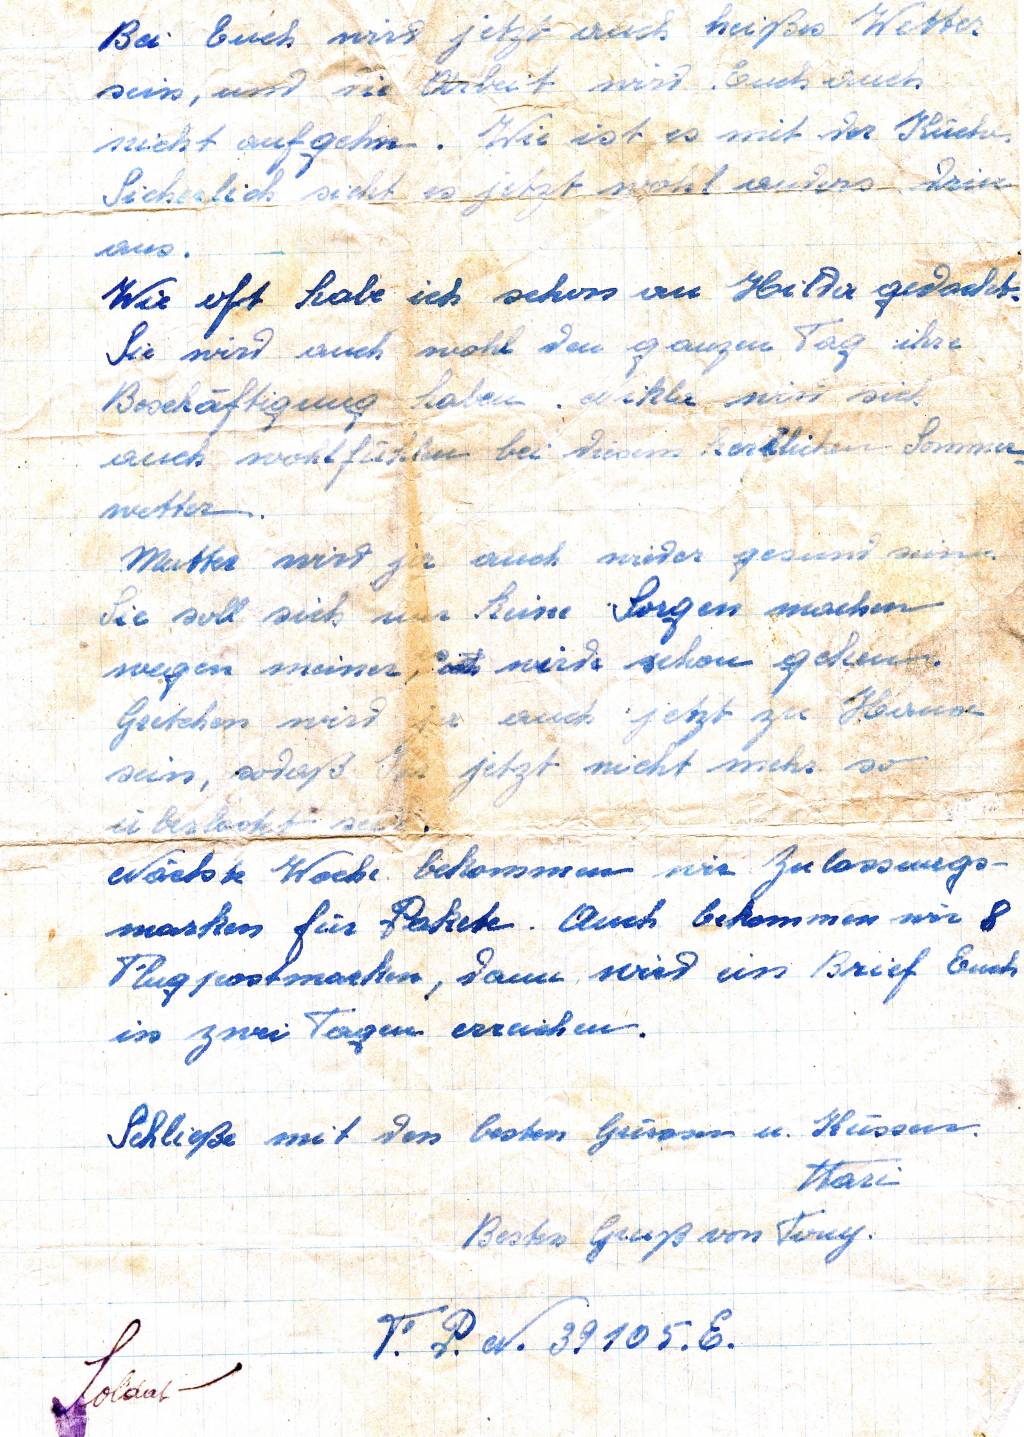 Bei Euch wird jetzt auch heißes Wetter
sein, und die Arbeit wird Euch auch
nicht aufgehn. Wie ist es mit der Küche.
Sicherlich sieht es jetzt wohl anders drin
aus.
Wie oft habe ich schon an Hilda gedacht.
Sie wird auch wohl den ganzen Tag ihre
Beschäftigung haben. wird sich
auch wohlfühlen bei diesem herrlichen Sommer-
wetter.
Mutter wird ja auch wieder gesund sein.
Sie soll sich nur keine Sorgen machen
wegen meiner, wird schon gehen.
Gretchen wird ja auch jetzt zu Hause
sein, sodaß Ihr jetzt nicht mehr so
seid.
Nächste Woche bekommen wir Zulassungs-
marken für Pakete. Auch bekommen wir 8
Flugpostmarken, dann wird ein Brief Euch
in zwei Tagen erreichen.
Schließe mit den besten Grüssen u. Küssen.
Hari
Besten Gruß von Tony.
F. P. N. 39105. E.
Soldat